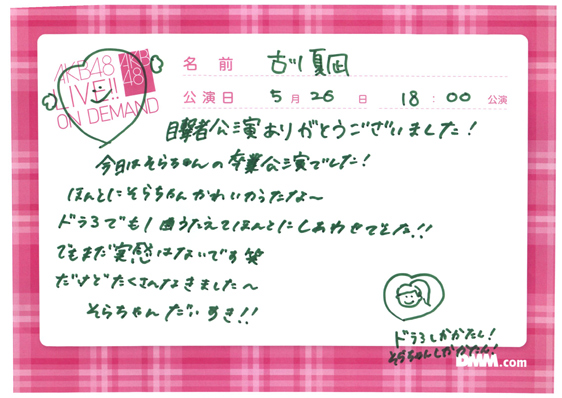 AKB48
LIVE!!
ON DEMAND
AKB
48
名前 古川夏凪
公演日 5月26日 18:00公演
目撃者公演ありがとうございました!
今日はそらちゃんの卒業公演でした!
ほんとにそらちゃんかわいかったな〜
ドラ3でも1曲うたえてほんとにしあわせでした!!
でもまだ実感はないです笑
だけどたくさんなきました〜
そらちゃんだいすき!!
ドラ3しかかたん!
そらちゃんしかかたん!
DMM.com